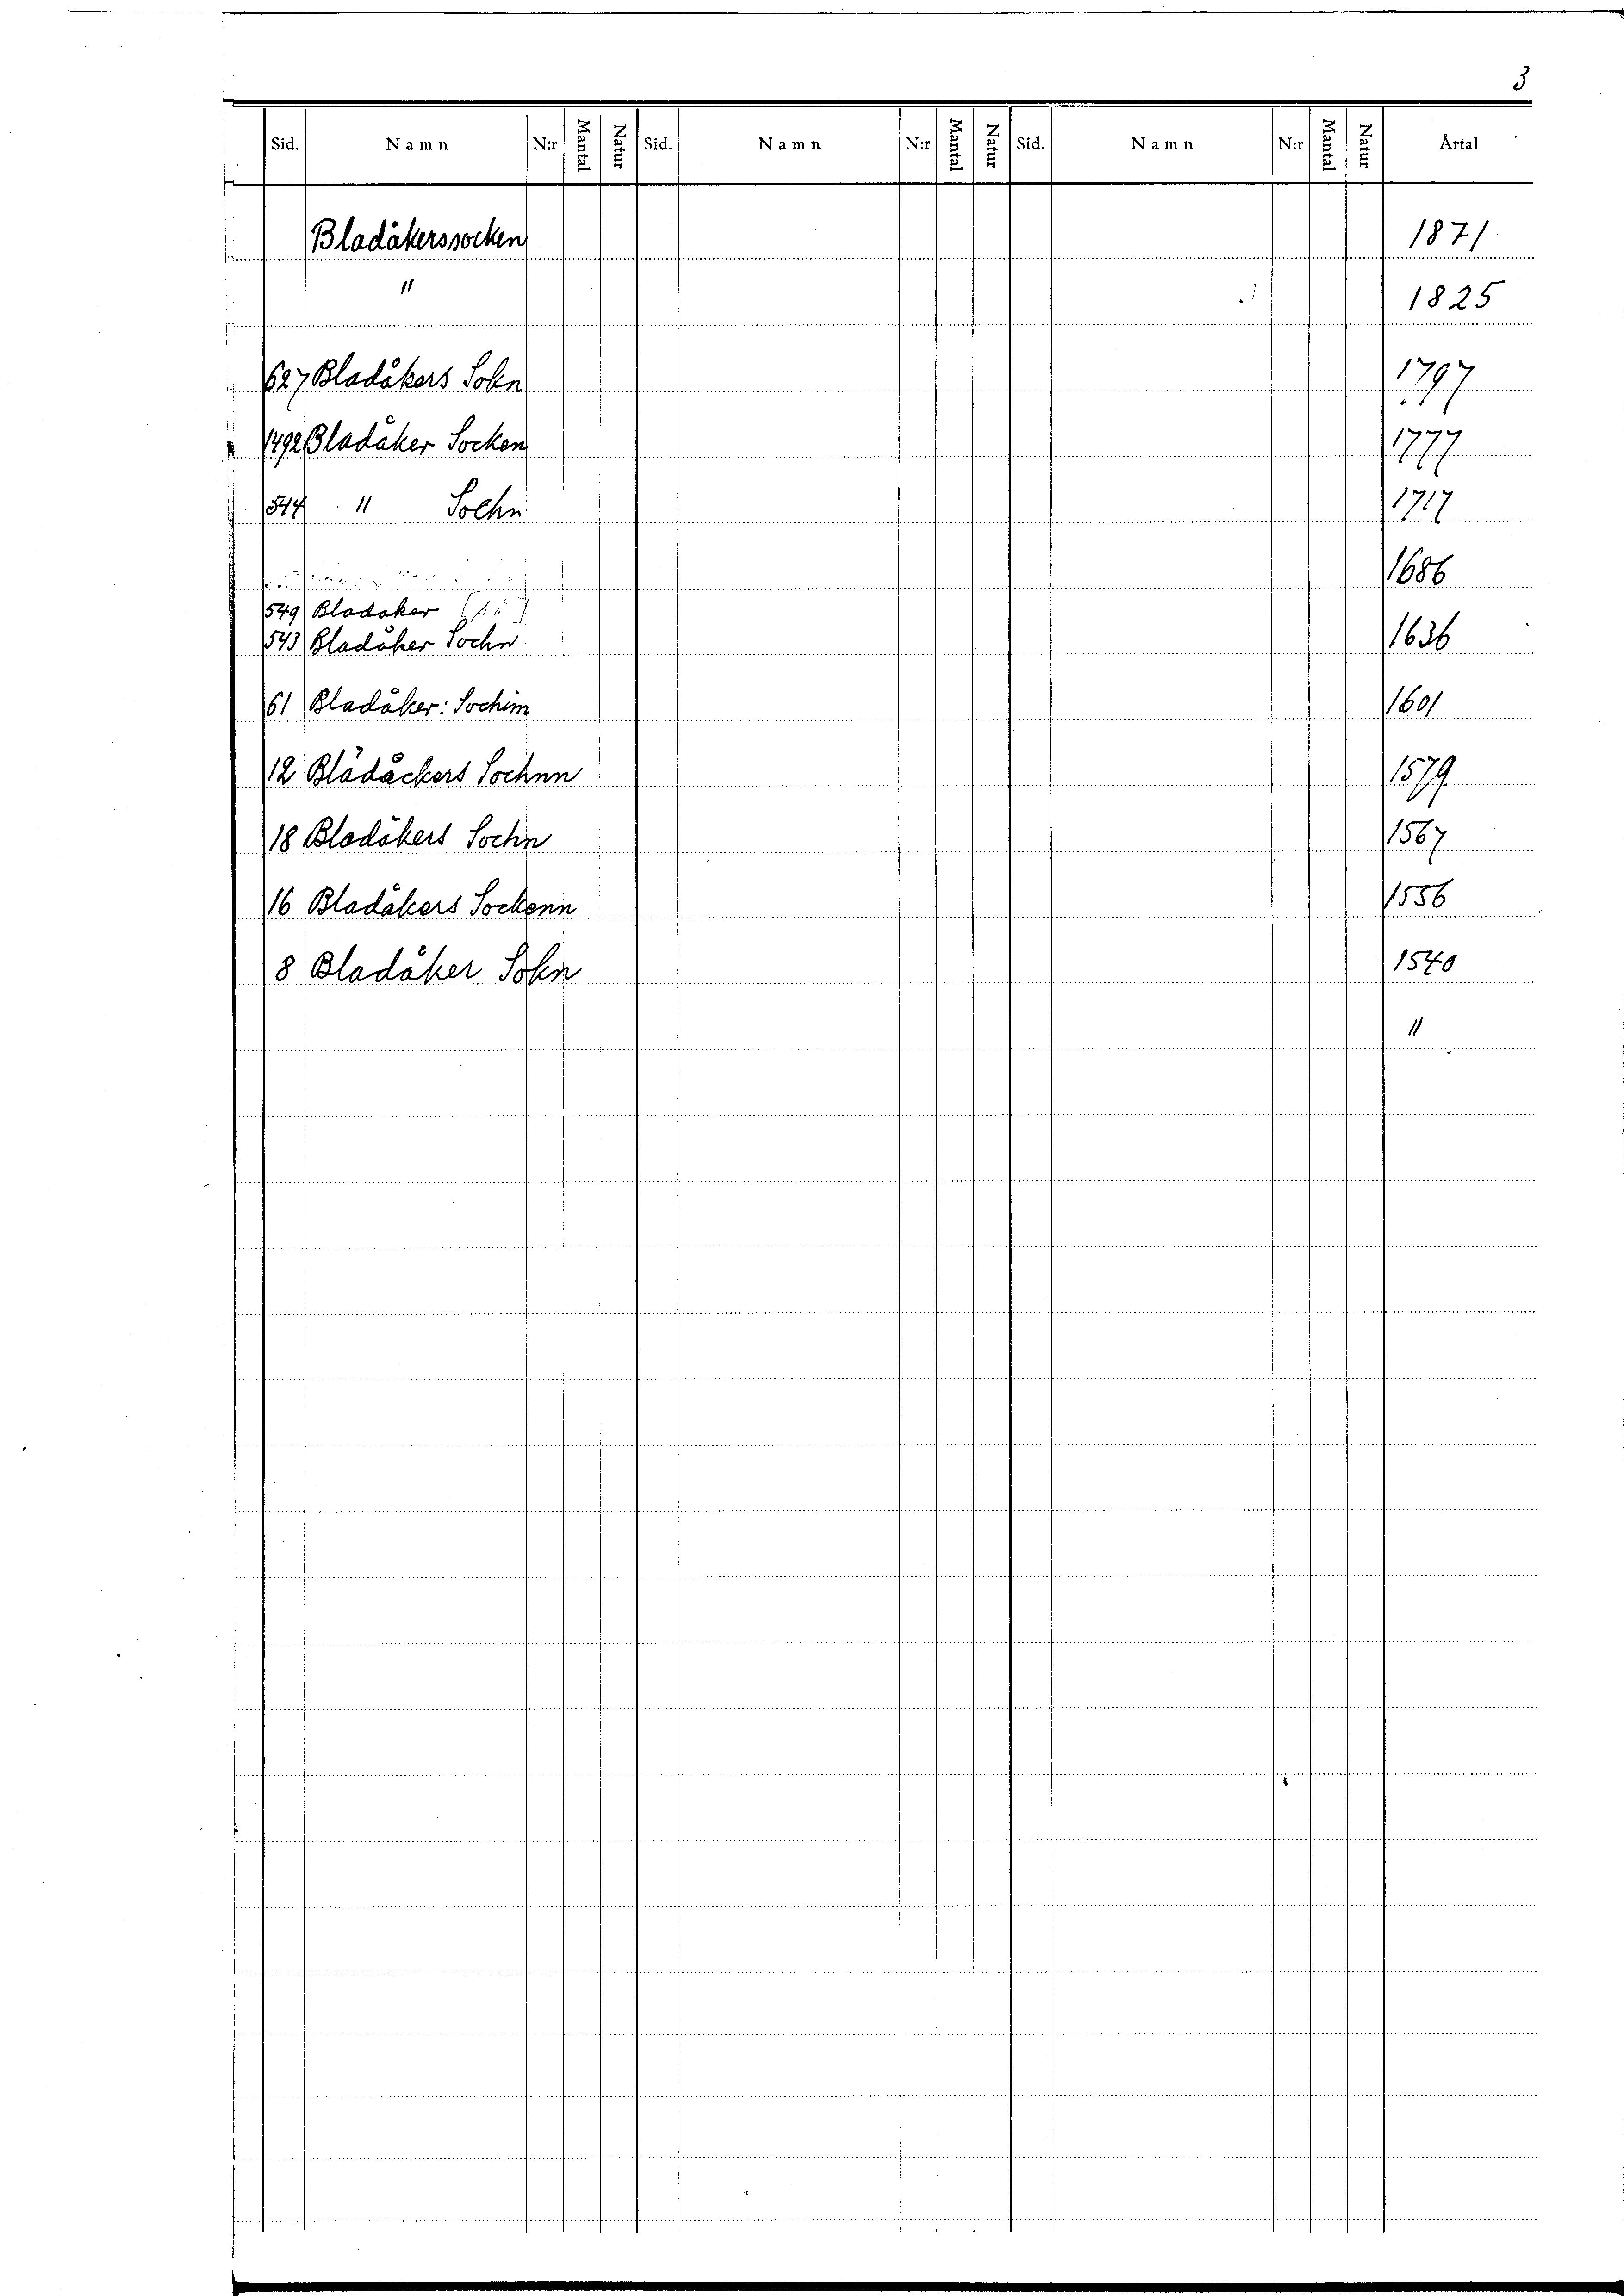 3
Sid. Namn N:r Mantal Natur Sid. Namn N:r Mantal Natur Sid. Namn N:r Mantal Natur Årtal
Bladåkerssocken 1871
" 1825
627 Bladåkers Sokn 1797
1492 Bladåker Socken 1777
544 " Sochn 1717
1686
549 Bladaker
543 Bladåker Sochn 1636
61 Bladåker: Sochim 1601
12 Blädåckers Sochnn 1579
18 Bladåkers Sochn 1567
16 Bladåkers Sockenn 1556
8 Bladåker Sokn 1540
"